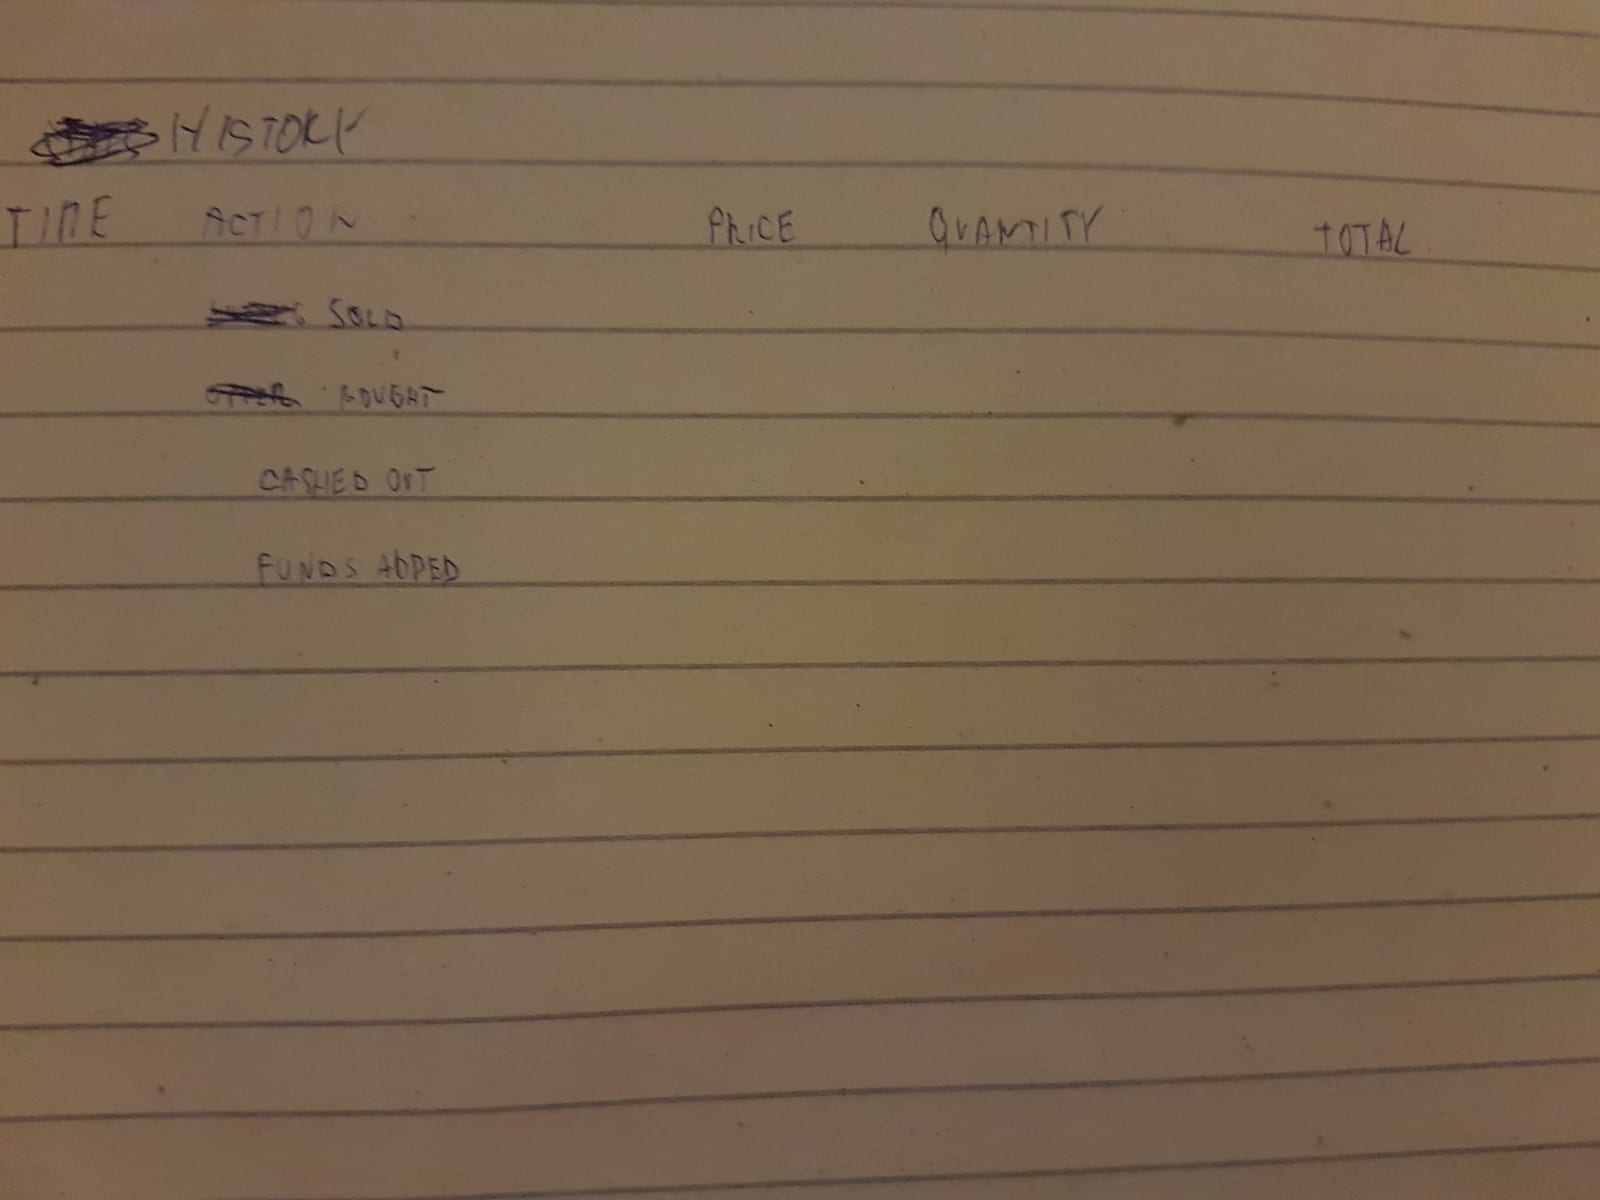 HISTORY
TIME ACTION PRICE QUANTITY TOTAL
SOLD
OFFER BOUGHT
CASHED OUT
FUNDS ADDED